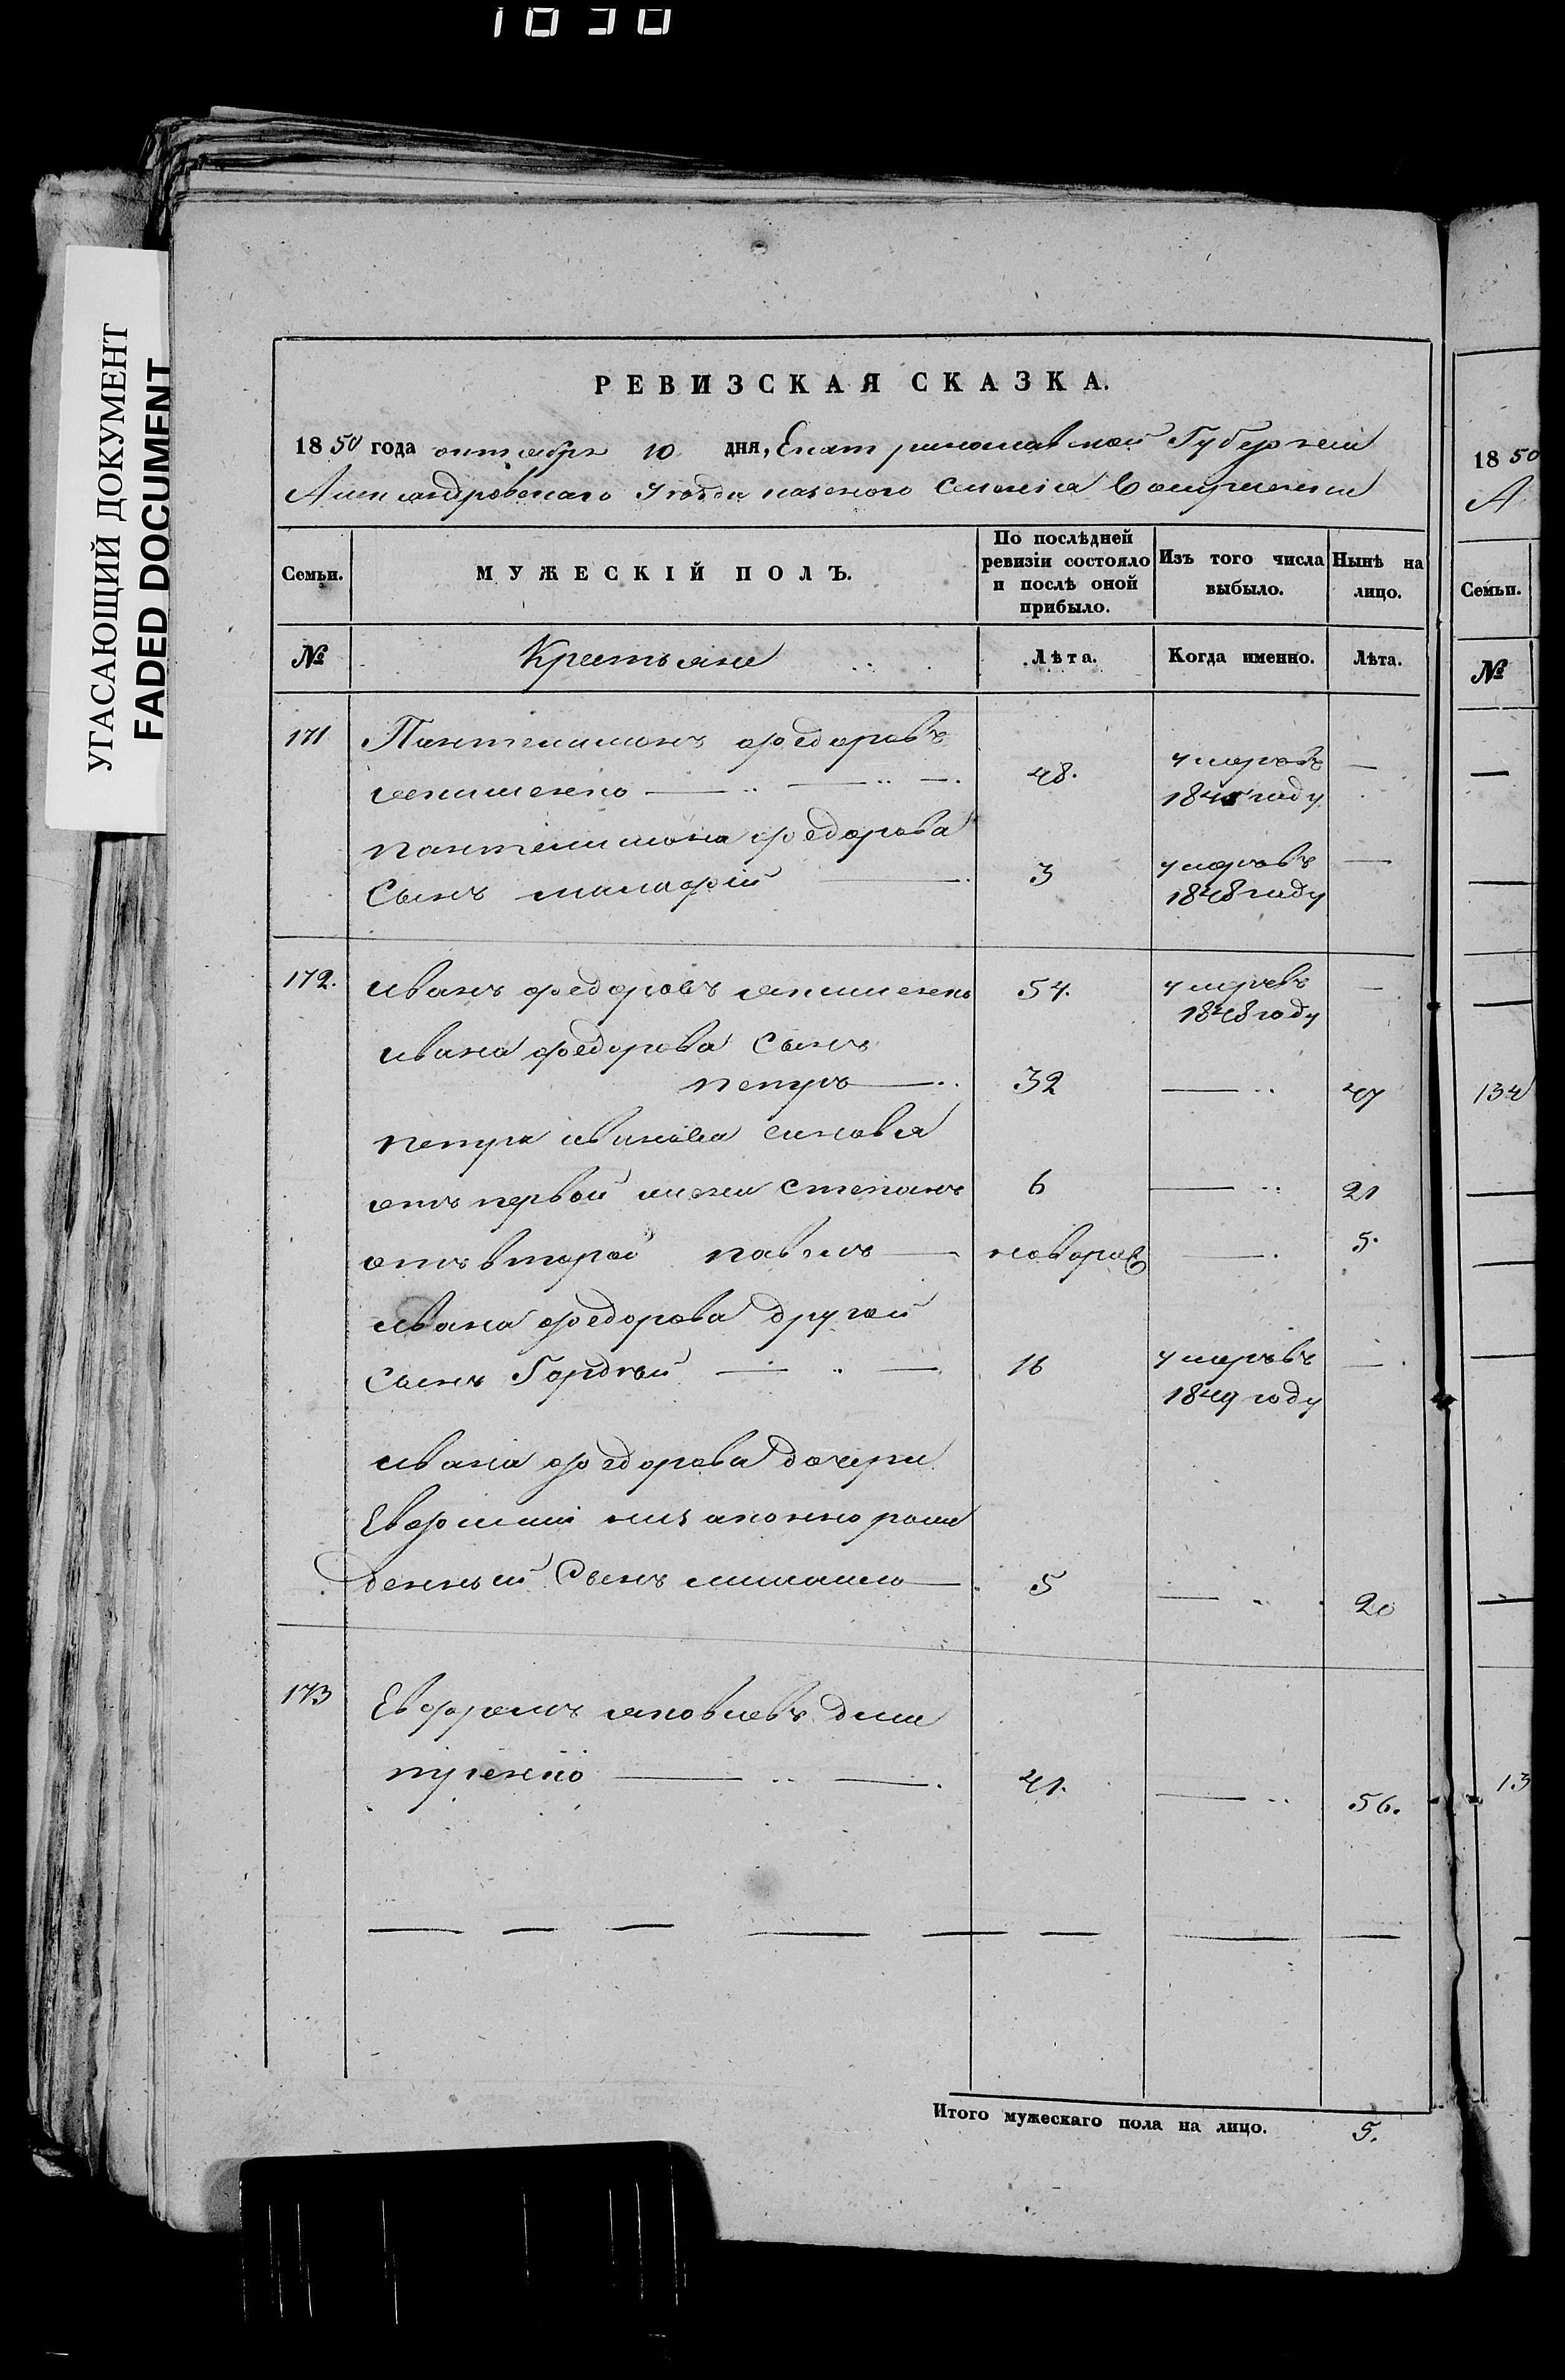 1030
УГАСАЮЩИЙ ДОКУМЕНТ
FADED DOCUMENT
РЕВИЗСКАЯ СКАЗКА.
1850 года октября 10 дня, Екатеринославской Губернiи
Александровскаго Уѣзда казеного Селенiя
Семьи. МУЖЕСКІЙ ПОЛЪ. По послѣдней ревизіи состояло и послѣ оной прибыло. Изъ того числа выбыло. Нынѣ на лицо.
№ Крестьяне Лѣта. Когда именно. Лѣта.
171 Пантелимонъ федоровъ
якименко — 48. умеръ въ 1845 году —
пантелимона федорова
Сынъ 3 умеръ въ 1848 году —
172. иванъ федоровъ якименко 54. умеръ въ 1848 году —
ивана федорова Сынъ
петръ — 32 — 47
петра иванова синовья
отъ первой жени степанъ 6 — 21
отъ второй павелъ — новорож — 5.
ивана федорова другой
Сынъ Гордѣй — 16 умеръ въ 1849 году —
ивана федорова дочери
Евфимии незаконно рож
денный Сынъ михаило — 5 — 20
173 Ефремъ яковлевъ дми
тріенко — 41. — 56.
Итого мужескаго пола на лицо. 5.
1850
А
Семьи.
№
134
13